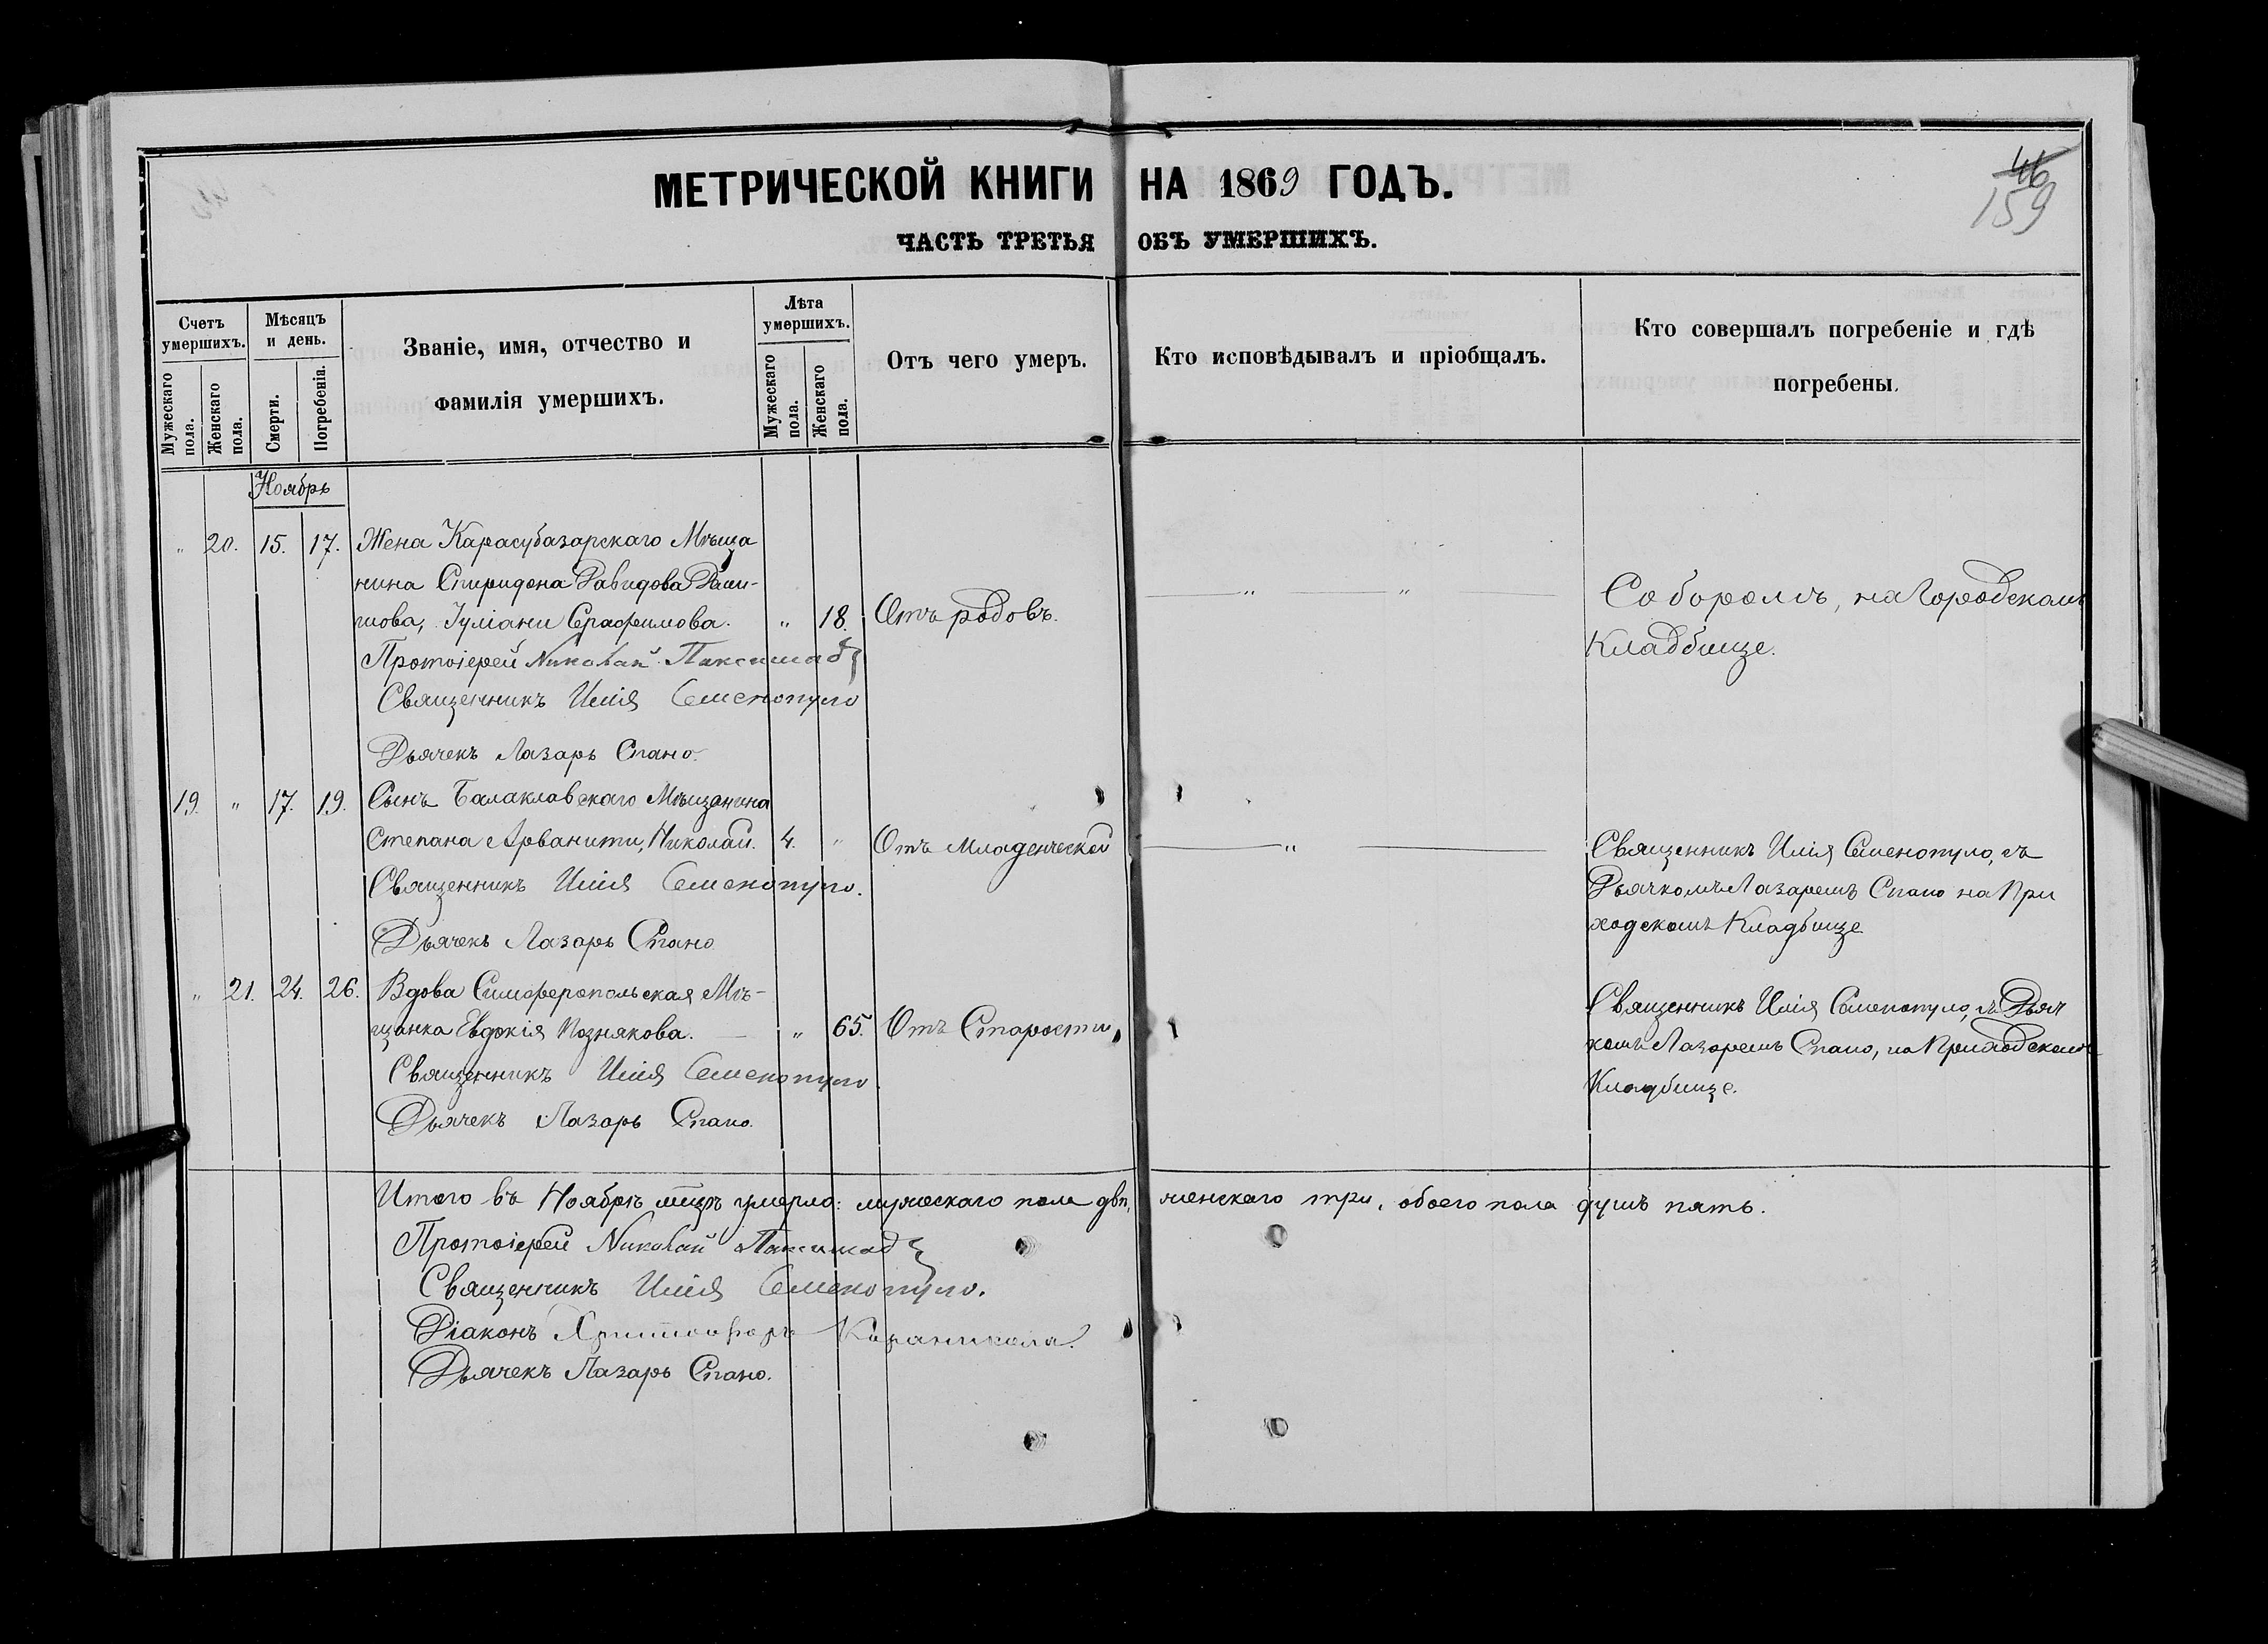 46
159
МЕТРИЧЕСКОЙ КНИГИ НА 1869 ГОДЪ.
ЧАСТЬ ТРЕТЬЯ ОБЪ УМЕРШИХЪ.
Счетъ умершихъ.
Мужескаго пола.
Женскаго пола.
Мѣсяцъ и день.
Смерти.
Погребенія.
Званіе, имя, отчество и
фамилія умершихъ.
Лѣта умершихъ.
Мужескаго пола.
Женскаго пола.
Отъ чего умеръ.
Кто исповѣдывалъ и пріобщалъ.
Кто совершалъ погребеніе и гдѣ
погребены.
Ноябрь
" 20. 15. 17. Жена Карасубазарскаго Мѣща
нина Спиридона Давидова
Іуліани Серафимова. " 18. Отъ родовъ. " " Соборомъ, на Городскомъ
Кладбище.
Протоіерей Николай
Священникъ Илія Семенопуло
Дьячекъ Лазарь Спано.
19. " 17. 19. Сынъ Балаклавскаго Мѣщанина
Степана Арванити, Николай. 4. " Отъ Младенческой "
Священникъ Илія Семенопуло, съ
Дьячкомъ Лазаремъ Спано на При
ходскомъ Кладбище
Священникъ Илія Семенопуло.
Дьячекъ Лазарь Спано
" 21. 24. 26. Вдова Симферопольская Мѣ-
щанка Евдокія Познякова. " 65. Отъ Старости
Священникъ Илія Семенопуло, съ Дьяч
комъ Лазаремъ Спано, на Приходскомъ
Кладбище.
Священникъ Илія Семенопуло
Дьячекъ Лазарь Спано.
Итого въ Ноябрѣ мцѣ умерло: мужескаго пола два, женскаго три, обоего пола душъ пять.
Протоіерей Николай
Священникъ Илія Семенопуло.
Діаконъ Христофоръ
Дьячекъ Лазарь Спано.